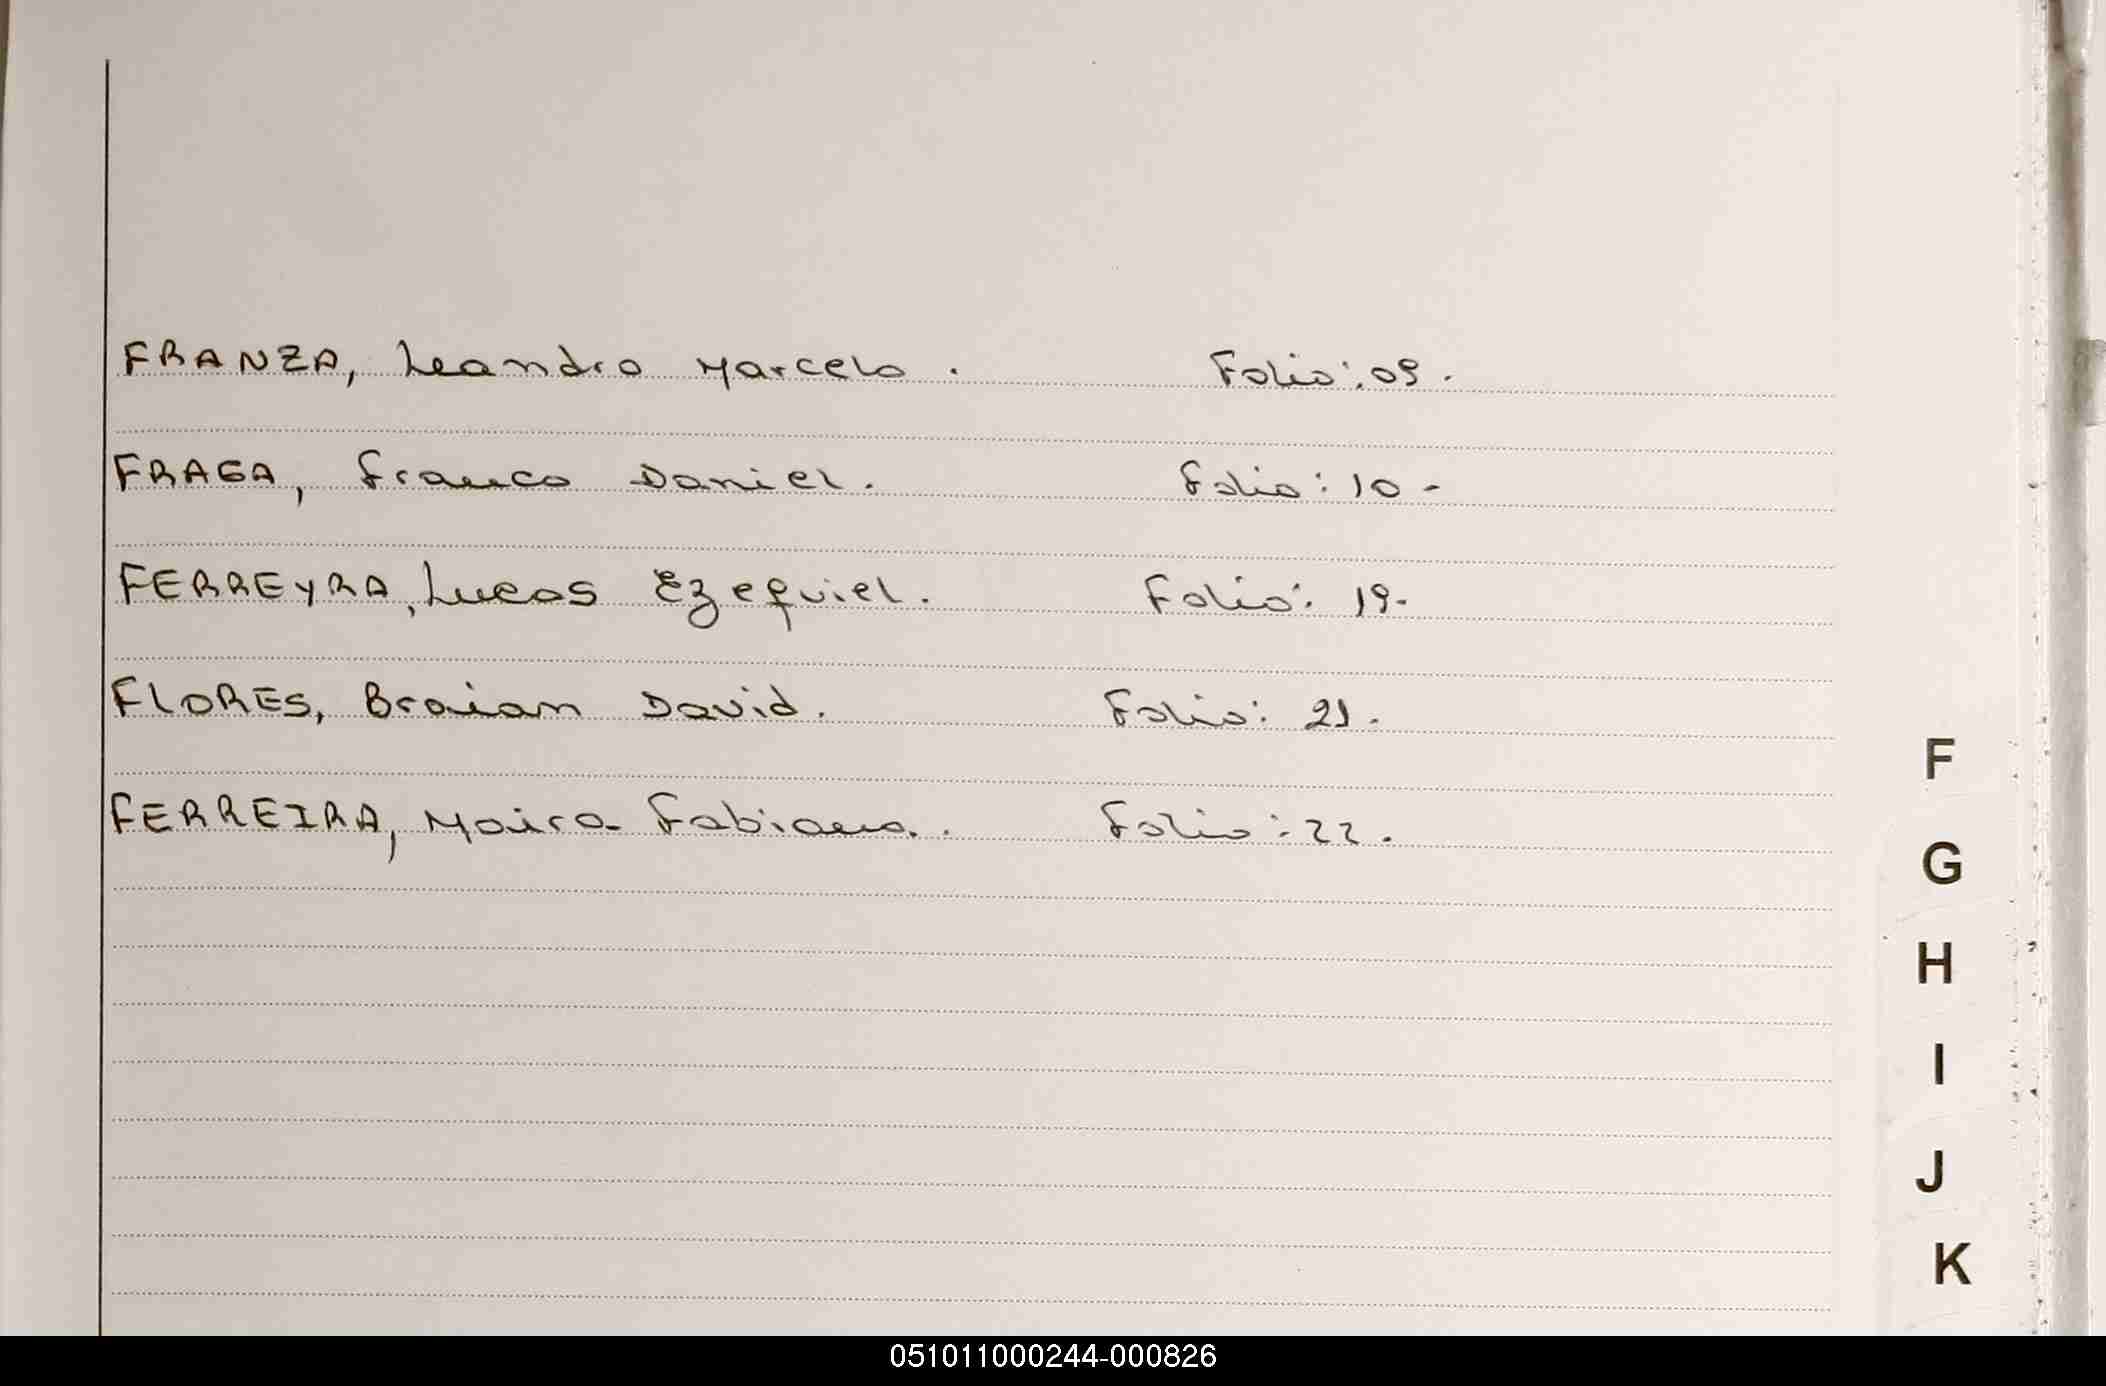 FRANZA, Leandro Marcelo . Folio : 09 .
FRAGA, Franco Daniel . Folio : 10 -
FERREYRA, Lucas Ezequiel . Folio : 19 .
FLORES, Braian David . Folio : 21 .
FERREIRA, Maira Fabiana . Folio : 22 .
F
G
H
I
J
K
051011000244-000826